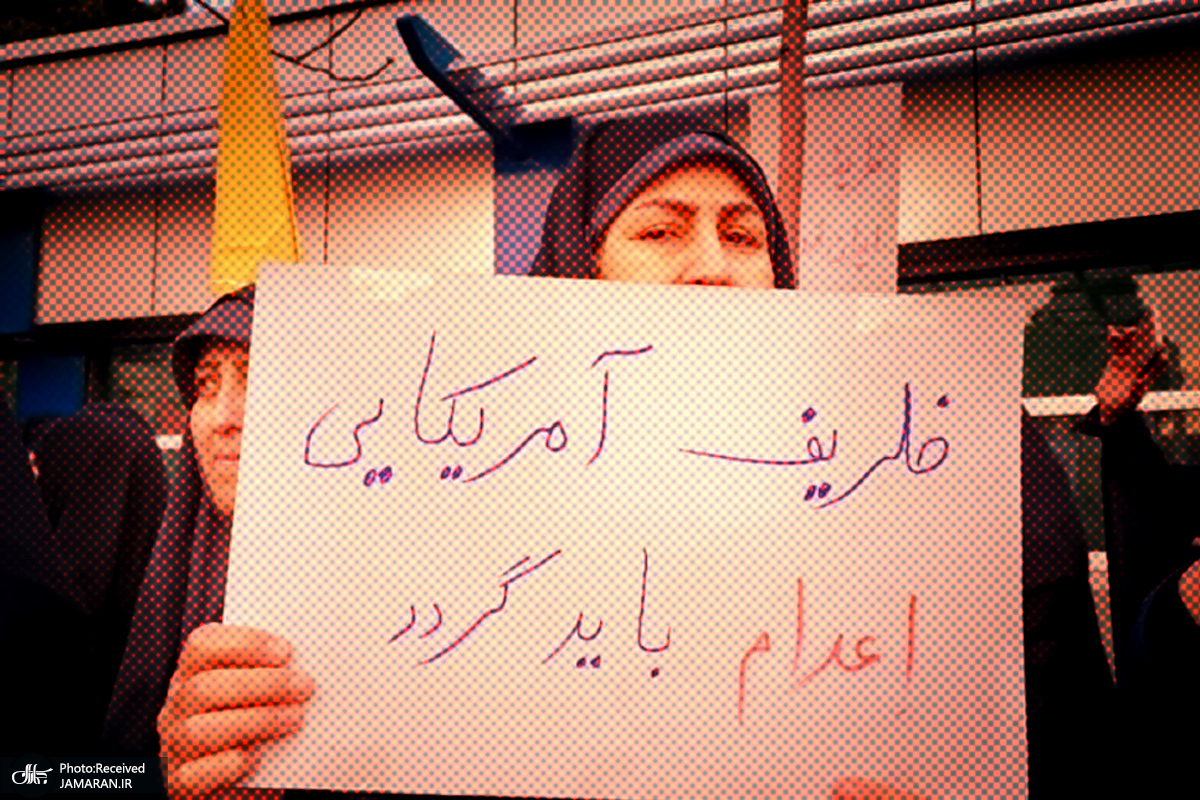 ظریف آمریکایی
اعدام باید گردد
جماران
Photo:Received
JAMARAN.IR